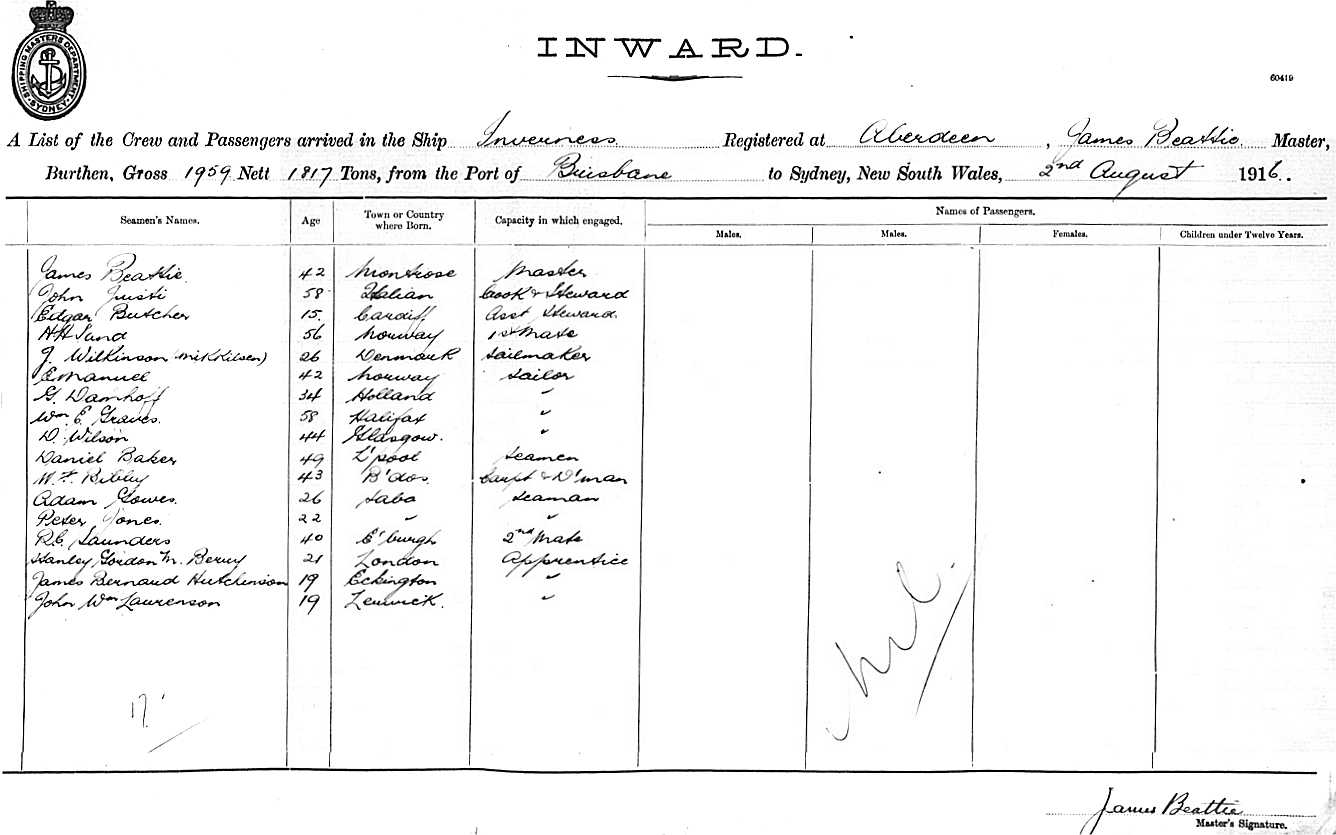 SHIPPING MASTERS DEPARTMENT SYDNEY
INWARD.
60419
A List of the Crew and Passengers arrived in the Ship Inverness Registered at Aberdeen, James Beattie Master,
Burthen, Gross 1959 Nett 1817 Tons, from the Port of Brisbane to Sydney, New South Wales, 2nd August 1916.
Seamen's Names. Age Town or Country where Born. Capacity in which engaged. Names of Passengers.
Males. Males. Females. Children under Twelve Years.
James Beattie 42 Montrose Master
John Justi 58 Italian Cook & Steward
Edgar Butcher 15 Cardiff Asst Steward
H H Sund 56 Norway 1st Mate
J. Wilkinson (Mikkilsen) 26 Denmark Sailmaker
E Manuel 42 Norway Sailor
G. Damhoff 34 Holland "
Wm E. Graves 58 Halifax "
D. Wilson 44 Glasgow. "
Daniel Baker 49 L'pool Seamen
W. F. Bibby 43 B'dos Carpt & D'man
Adam Gowes 26 Saba Seaman
Peter Jones 22 " "
R.C. Saunders 40 E'burgh 2nd Mate
Stanley Gordon M. Berry 21 London Apprentice
James Bernard Hutchinson 19 Eckington "
John Wm Laurenson 19 Lerwick. "
17
Nil
James Beattie
Master's Signature.